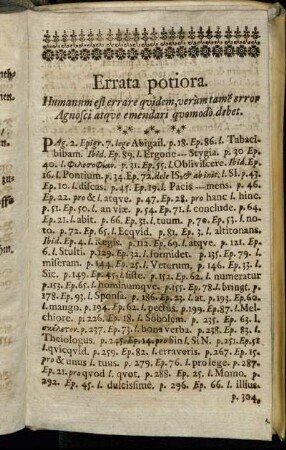 Errata potiora.
Humanum est errare qvidem, verùm tamẽ error
Agnosci atqve emendari qvomodò debet.
PAg. 2. Epigr. 7. lege Abigail. p. 18. Ep. 86. l. Tabaci-
bibam. Ibid. Ep. 89. l. Ergone -- Stygia. p. 30 Ep.
40. l. p. 31. Ep. 55. l. Oblivíscere. Ibid. Ep.
16. l. Pontium. p. 34. Ep. 72. dele IS, & ab init. l. SI. p. 43.
Ep. 10. l. discas. p. 45. Ep. 19. l. Pacis -- mens. p. 46.
Ep. 22. pro & l. atqve. p. 47. Ep. 28. pro hanc l. hinc.
p. 51. Ep. 50. l. an vix. p. 54. Ep. 71. l. conclude. p. 64.
Ep. 21. l. abit. p. 66. Ep. 31. l. tuum. p. 70. Ep. 53. l. no-
to. p. 72. Ep. 65. l. Ecqvid. p. 81. Ep. 3. l. altitonans.
Ibid. Ep. 4. l. Regis. p. 112. Ep. 69. l. atqve. p. 121. Ep.
6. l. Stulti. p. 129. Ep. 32. l. formidet. p. 135. Ep. 79. l.
miseram. p. 144. Ep. 25. l. Veterum. p. 146. Ep. 33. l.
Sic. p. 149. Ep. 45. l. siste. p. 152. Ep. 62. l. numeratur
p. 153. Ep. 65. l. hominumqve. p. 155. Ep. 78. l. bringt. p.
178. Ep. 93. l. Sponsa. p. 186. Ep. 23. l. at. p. 193. Ep. 60.
l. mango. p. 194. Ep. 62. l. pectus. p. 199. Ep. 87. l. Mel-
chiore. p. 226. Ep. 18. l. Sobolem. p. 235. Ep. 63. l.
p. 237. Ep. 73. l. bona verba. p. 238. Ep. 83. l.
Theiologus. p. 245. Ep. 14. pro Sin l. Si N. p. 251. Ep. 51
l. qvicqvid. p. 259. Ep. 82. l. erraveris. p. 267. Ep. 15.
pro & unus l. tuus. p. 279. Ep. 76. l. pro lege. p. 287.
Ep. 21. pro qvod l. qvot. p. 288. Ep. 25. l. Momo. p.
292. Ep. 45. l. dulcissimè. p. 296. Ep. 66. l. illius.
p. 304.